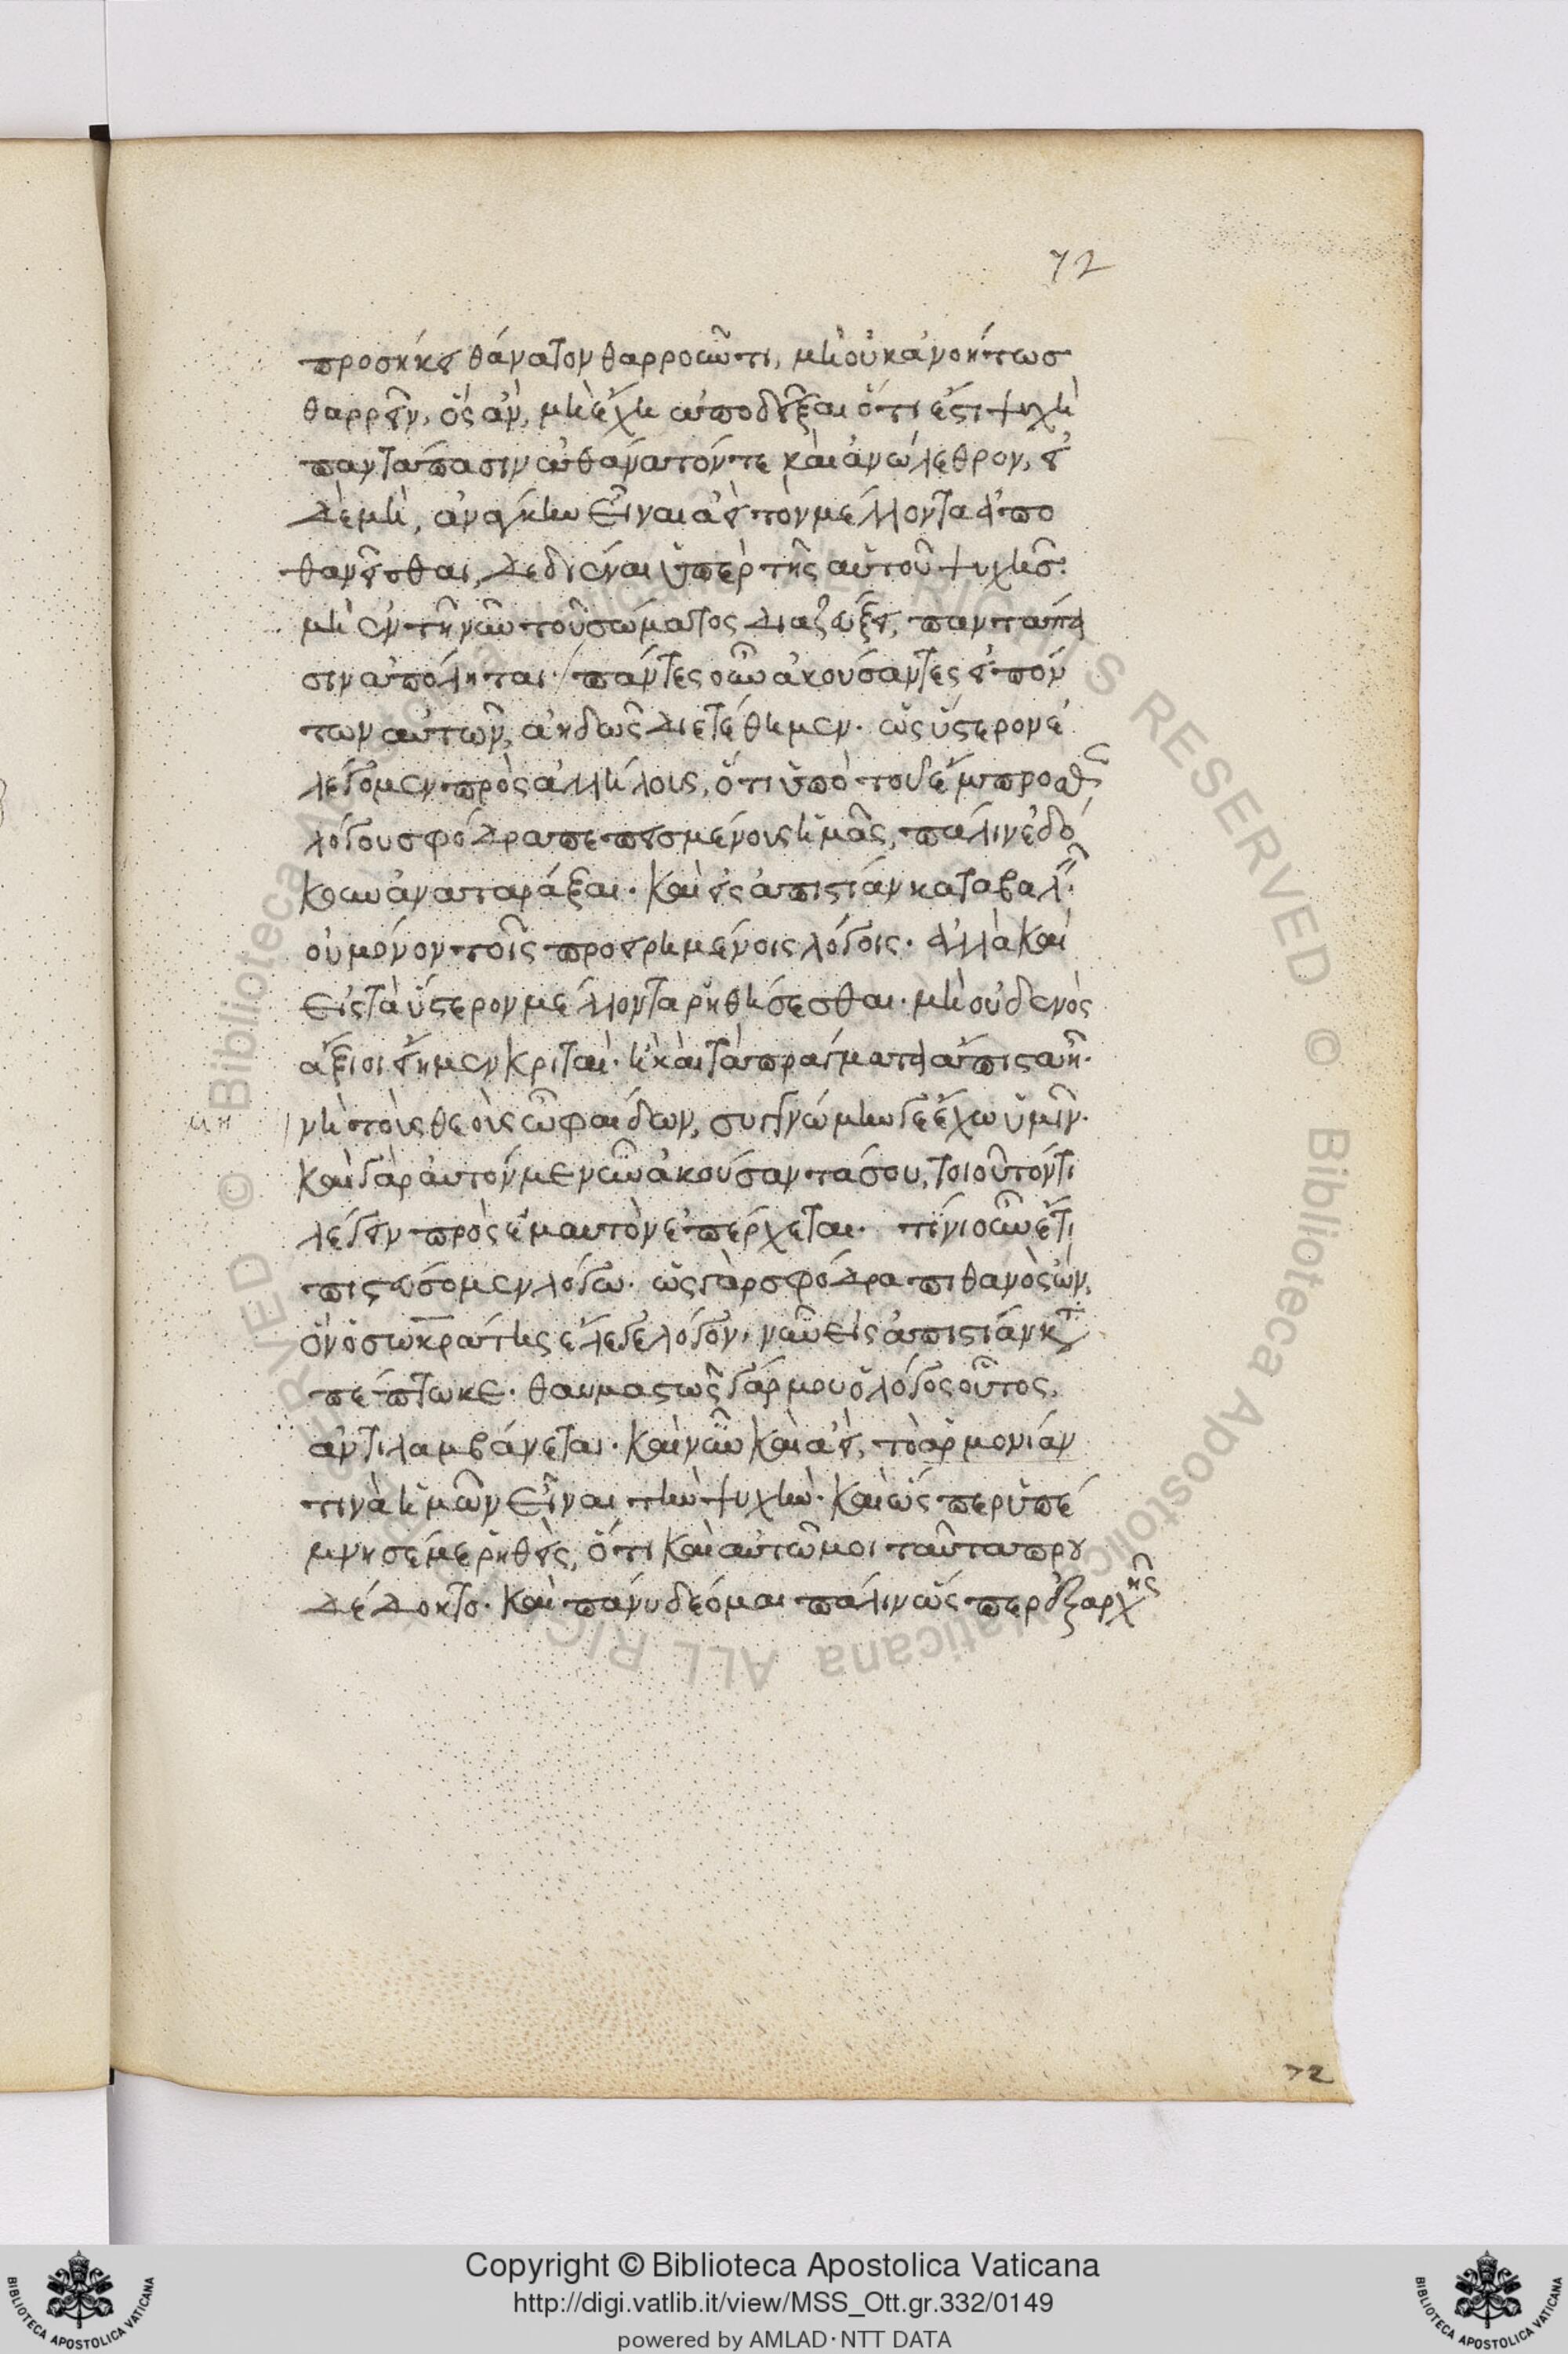 72
προσήκει θάνατον θαρροῦντι, μὴ οὐκ ἀνοήτως
θαρρεῖν, ὃς ἂν, μὴ ἔχη ἀποδεῖξαι ὅτι ἔστι ψυχὴ
παντάπασιν ἀθάνατόν τε καὶ ἀνώλεθρον, εἰ
δὲ μὴ, ἀνάγκην εἶναι ἀεὶ τὸν μέλλοντα ἀπο
θανεῖσθαι, δεδιέναι ὑπὲρ τῆς αὑτοῦ ψυχῆς.
μὴ ἐν τῆ νῦν τοῦ σώματος διαζεύξει, παντάπα
σιν ἀπόληται. πάντες οὖν ἀκούσαντες εἰπόν
των αὐτῶν, ἀηδῶς διετέθημεν. ὡς ὕστερον ἐ
λέγομεν πρὸς ἀλλήλους, ὅτι ὑπὸ τοῦ ἔμπροσθεν
λόγου σφόδρα πεπεισμένους ἡμᾶς, πάλιν ἐδό
κουν ἀναταράξαι. καὶ εἰς ἀπιστίαν καταβαλεῖν.
οὐ μόνον τοῖς προειρημένοις λόγοις. ἀλλὰ καὶ
εἰς τὰ ὕστερον μέλλοντα ῥηθήσεσθαι. μὴ οὐδενὸς
ἄξιοι εἴημεν κριταὶ. ἢ καὶ τὰ πράγματα ἄπιστα ἦ.
νὴ τοὺς θεοὺς ὦ φαίδων, συγγνώμην γε ἔχω ὑμῖν.
καὶ γὰρ αὐτόν με νῦν ἀκούσαντά σου, τοιοῦτόν τι
λέγειν πρὸς ἐμαυτὸν ἐπέρχεται. τίνι οὖν ἔτι
πιστεύσομεν λόγω. ὡς γὰρ σφόδρα πιθανὸς ὢν,
ὃν ὁ σωκράτης ἔλεγε λόγον, νῦν εἰς ἀπιστίαν κατα
πέπτωκε. θαυμαστῶς γάρ μου ὁ λόγος οὗτος,
ἀντιλαμβάνεται. καὶ νῦν καὶ ἀεὶ, τὸ ἁρμονίαν
τινὰ ἡμῶν εἶναι τὴν ψυχὴν. καὶ ὥσπερ ὑπέ
μνησέ με ῥηθεὶς, ὅτι καὶ αὐτῶ μοι ταῦτα πρου
δέδοκτο. καὶ πάνυ δέομαι πάλιν ὥσπερ ἐξ ἀρχῆς
72
Copyright © Biblioteca Apostolica Vaticana
http://digi.vatlib.it/view/MSS_Ott.gr.332/0149
powered by AMLAD·NTT DATA